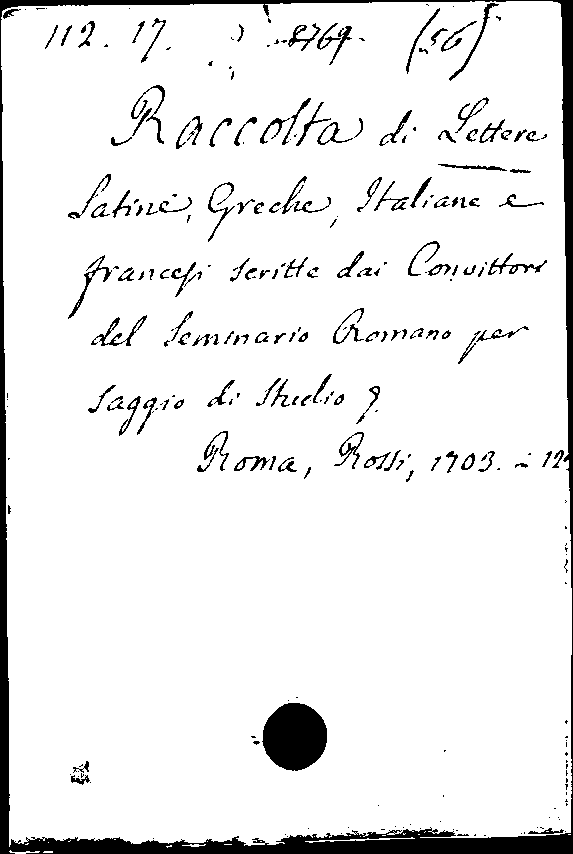 112. 17. 8769. (56)
Raccolta di Lettere
Latine, Greche, Italiane e
francesi scritte dai Convittori
del Seminario Romano per
saggio di Studio
Roma, Rossi, 1703. in 12°